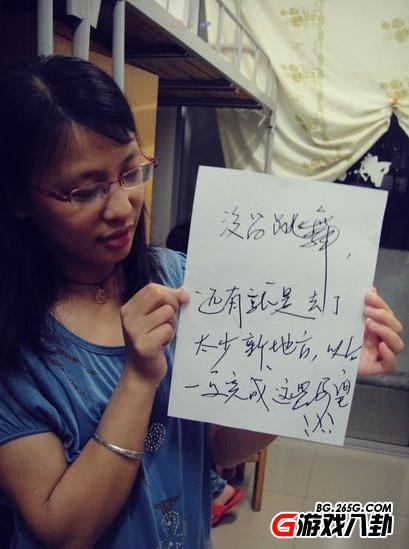 没召跳舞,
还有就是去了
太少新地方,以后
一定完成这些愿望
BG.265G.COM
G游戏八卦